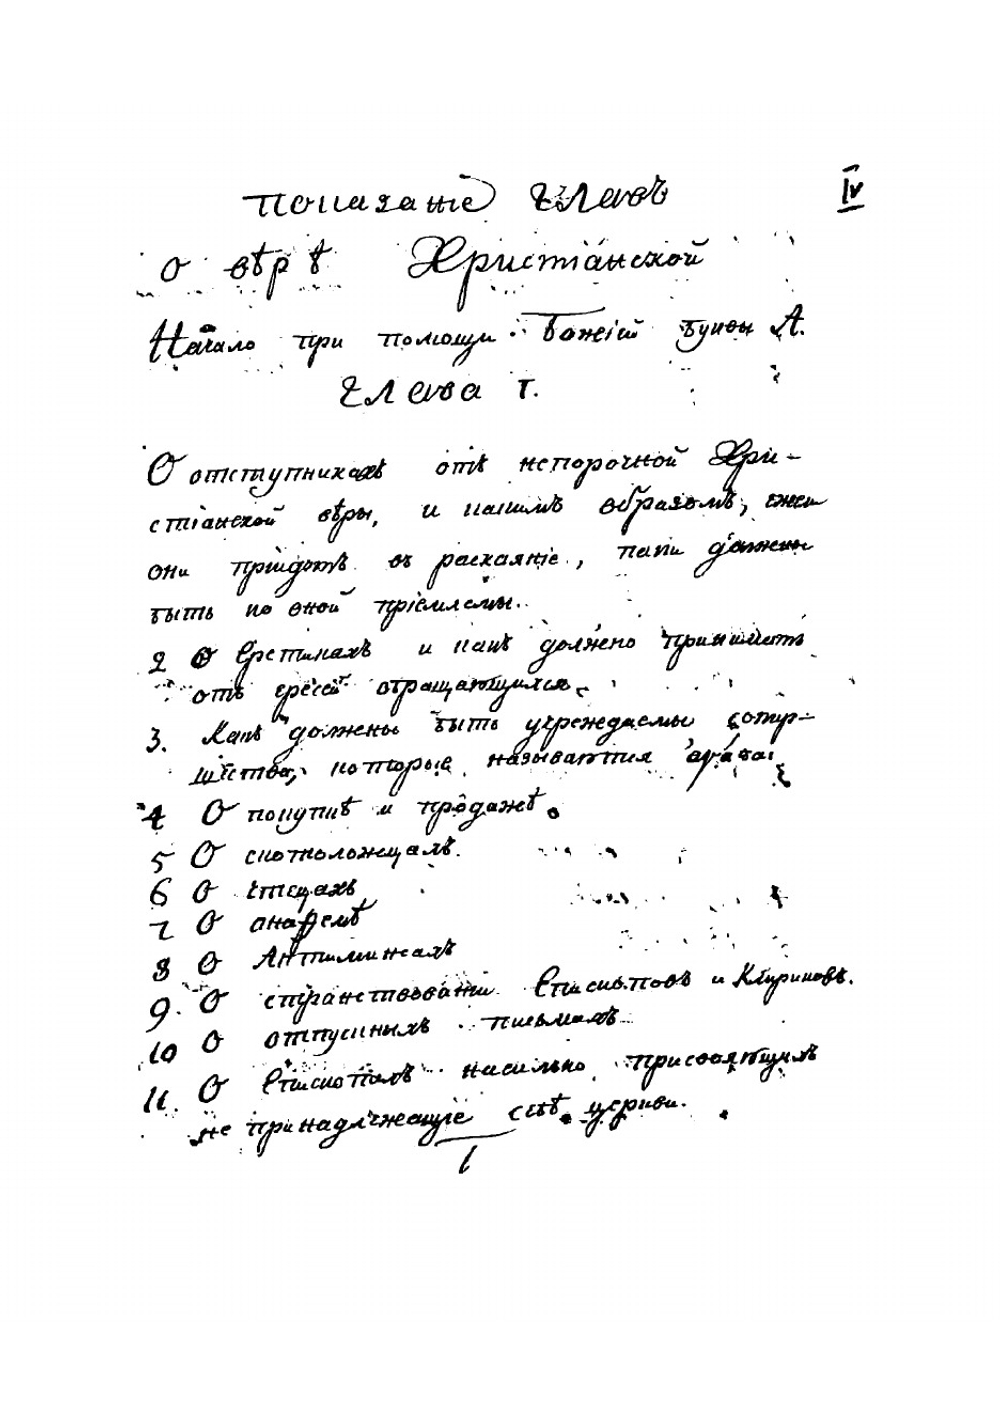 IV
Показаніе Главъ
О вѣрѣ Христіанской
Начало при помощи Божіей Буквы А.
Глава 1.
О отступникахъ отъ непорочной Хри-
стіанской вѣры, и какимъ образомъ, ежели
они прійдутъ въ раскаяніе, паки должны
быть по оной пріемлемы.
2 О Еретикахъ и какъ должно принимать
отъ ересей обращающихся.
3. Какъ должены быть учреждаемы
которые называются
4 О покупкѣ и продажѣ.
5 О скотоложцахъ.
6 О чтецахъ
7 О анаѳемѣ
8 О Антиминсахъ
9. О странствованіи Епископовъ и Клириковъ.
10 О отпускныхъ письмахъ
11. О Епископахъ насильно присвояющихъ
не принадлежащіе себѣ церкви.
1